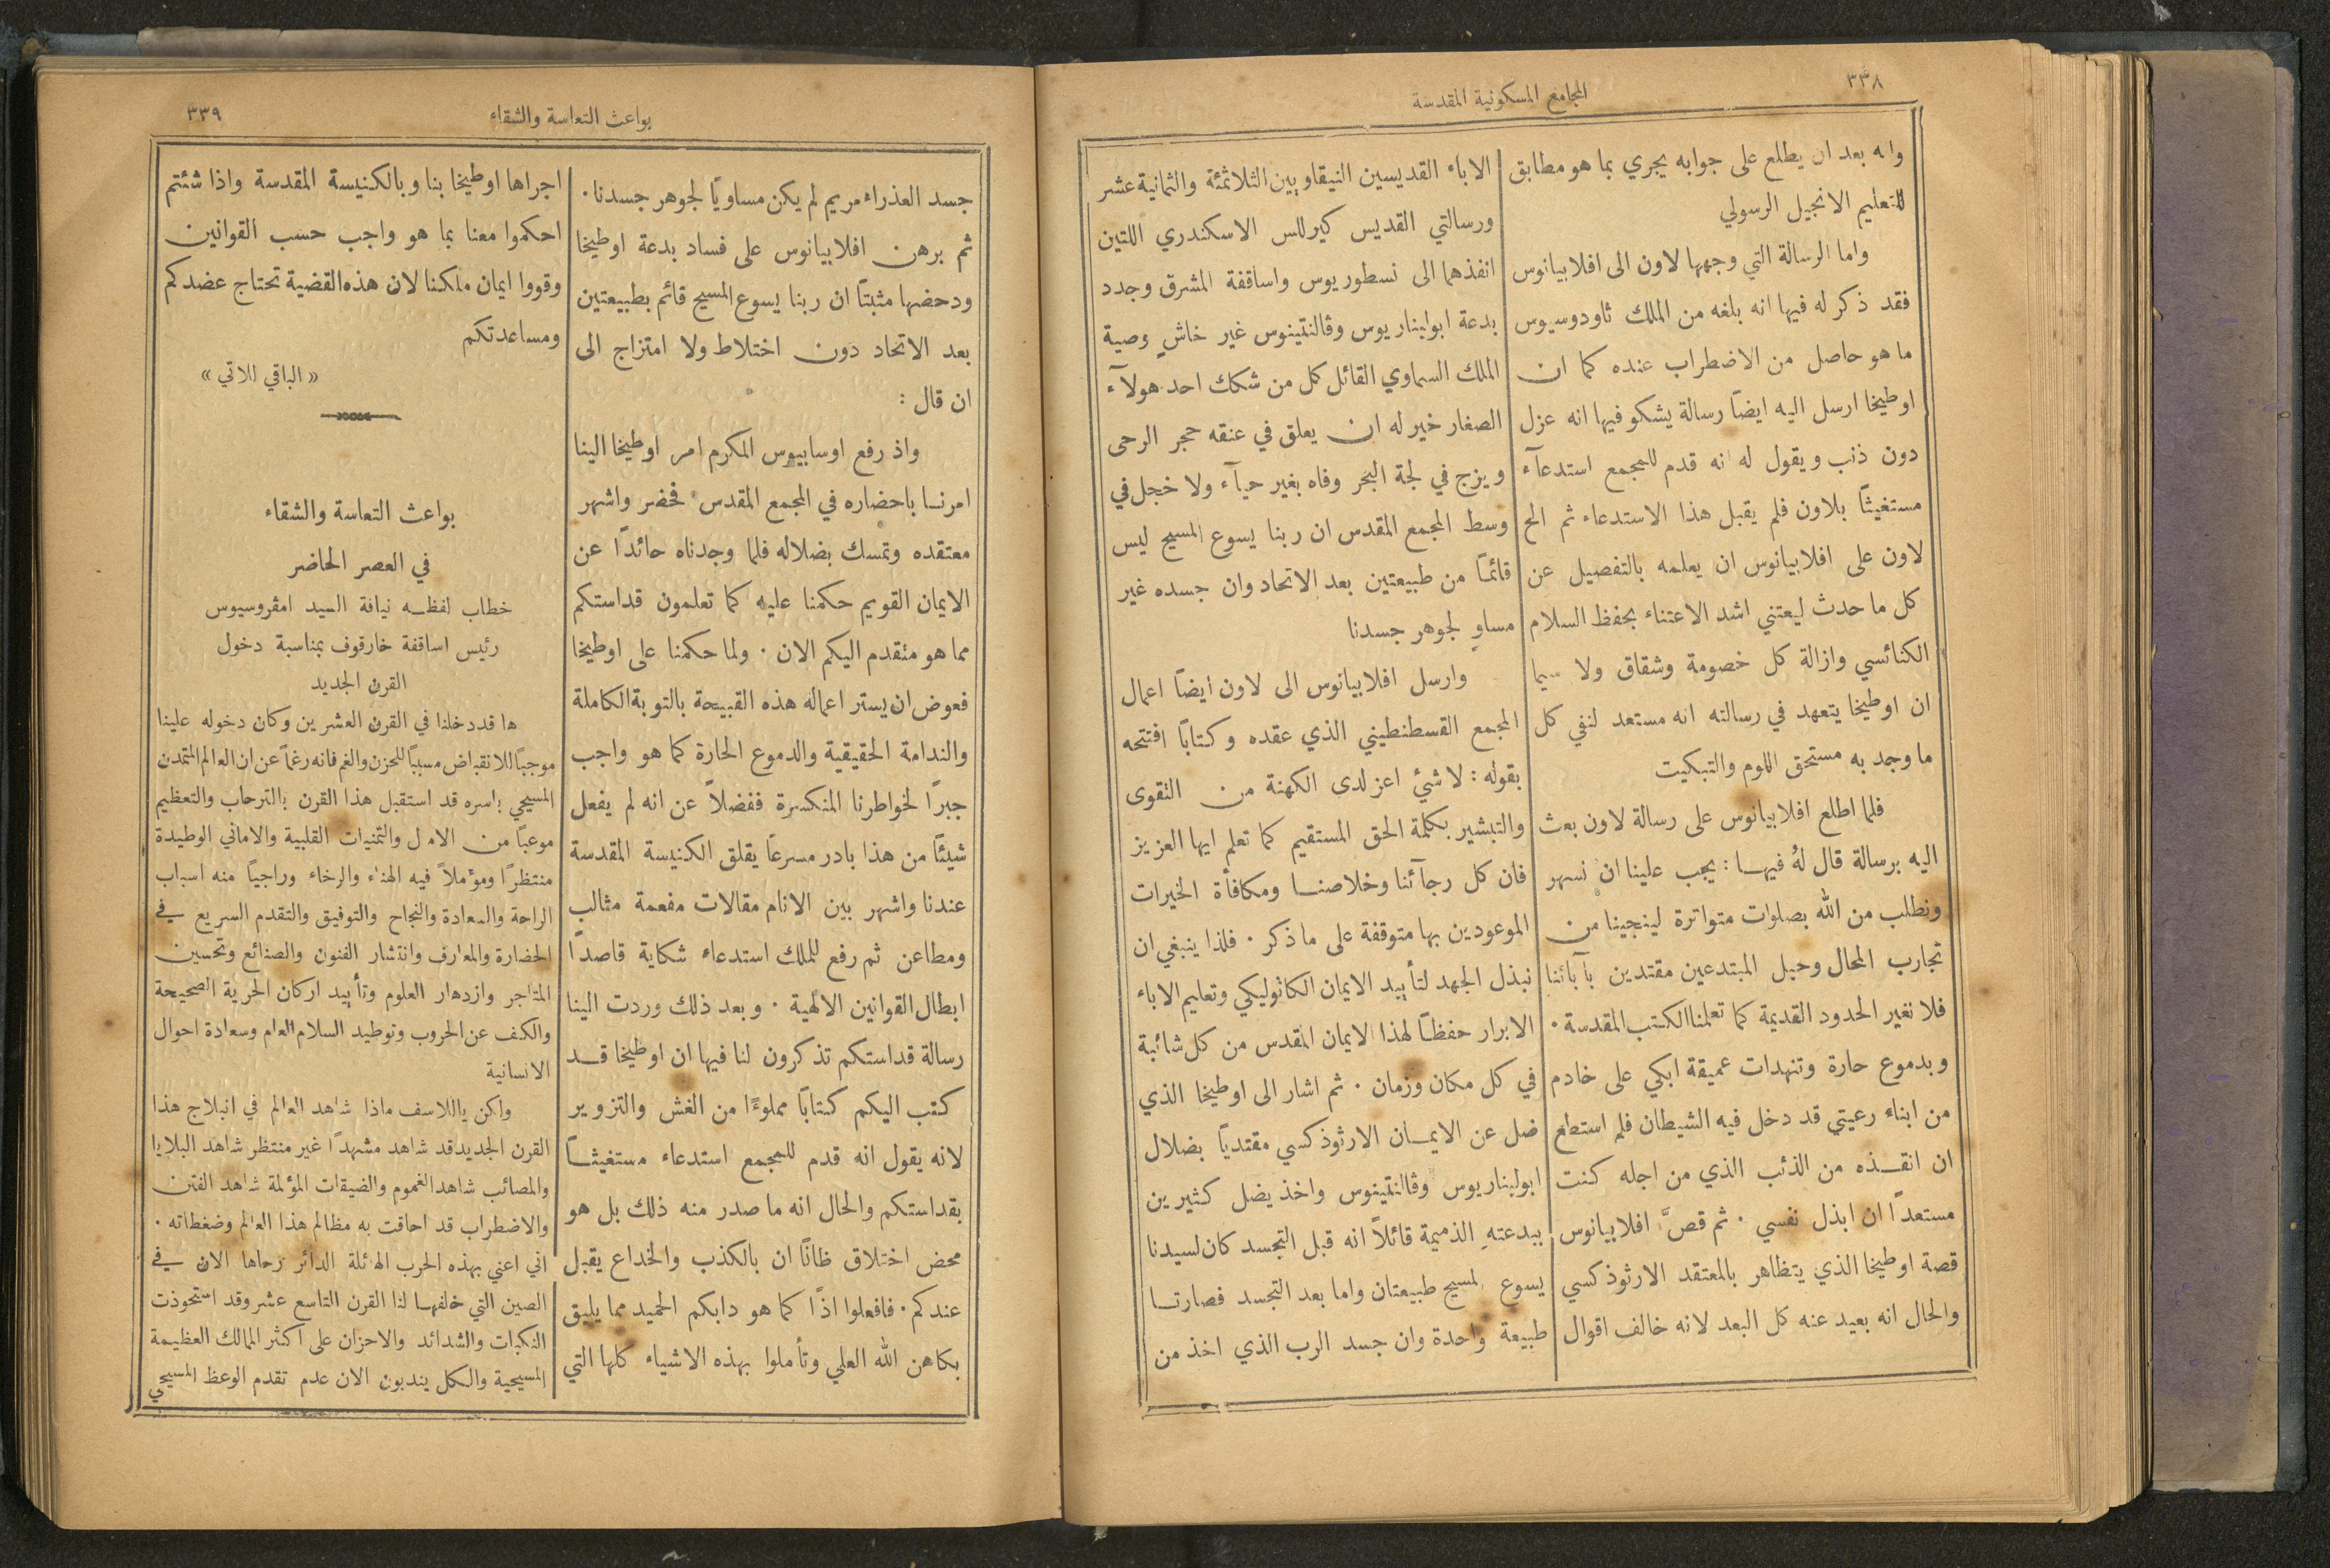 ٣٣٨
المجامع المسكونية المقدسة
وانه بعد ان يطلع على جوابه يجري بما هو مطابق
للتعليم الانجيل الرسولي
واما الرسالة التي وجهها لاون الى افلابيانوس
فقد ذكر له فيها انه بلغه من الملك ثاودوسيوس
ما هو حاصل من الاضطراب عنده كما ان
اوطيخا ارسل اليه ايضاً رسالة يشكو فيها انه عزل
دون ذنب ويقول له انه قدم للمجمع استدعآء
مستغيثاً بلاون فلم يقبل هذا الاستدعاء ثم الح
لاون على افلابيانوس ان يعلمه بالتفصيل عن
كل ما حدث ليعتني اشد الاعتناء بحفظ السلام
الكنائسي وازالة كل خصومة وشقاق ولا سيما
ان اوطيخا يتعهد في رسالته انه مستعد لنفي كل
ما وجد به مستحق اللوم والتبكيت
فلما اطلع افلابيانوس على رسالة لاون بعث
اليه برسالة قال لهُ فيهـا : يجب علينا ان نسهر
ونطلب من الله بصلوات متواترة لينجينا من
تجارب المحال وحيل المبتدعين مقتدين بآبائنا
فلا نغير الحدود القديمة كما تعلمنا الكتب المقدسة ٠
وبدموع حارة وتنهدات عميقة ابكي على خادم
من ابناء رعيتي قد دخل فيه الشيطان فلم استطع
ان انقـذه من الذئب الذي من اجله كنت
مستعداً ان ابذل نفسي ٠ ثم قصَّ افلابيانوس
قصة اوطيخا الذي يتظاهر بالمعتقد الارثوذكسي
والحال انه بعيد عنه كل البعد لانه خالف اقوال
الاباء القديسين النيقاويين الثلاثمئة والثمانية عشر
ورسالتي القديس كيرللس الاسكندري اللتين
انفذهما الى نسطوريوس واساقفة المشرق وجدد
بدعة ابولينا‌ريوس وڤالنتينوس غير خاشٍ وصية
الملك السماوي القائل كل من شكك احد هولآء
الصغار خير له ان يعلق في عنقه حجر الرحى
ويزج في لجة البحر وفاه بغير حيآء ولا خجل في
وسط المجمع المقدس ان ربنا يسوع المسيح ليس
قائمـاً من طبيعتين بعد الاتحاد وان جسده غير
مساوٍ لجوهر جسدنا
وارسل افلابيانوس الى لاون ايضاً اعمال
المجمع القسطنطيني الذي عقده وكتاباً افتتحه
بقوله : لا شيُ اعز لدى الكهنة من التقوى
والتبشير بكلمة الحق المستقيم كما تعلم ايها العزيز
فان كل رجآئنا وخلاصنـا ومكافأة الخيرات
الموعودين بها متوقفة على ما ذكر ٠ فلذا ينبغي ان
نبذل الجهد لتأييد الايمان الكاثوليكي وتعليم الاباء
الابرار حفظـاً لهذا الايمان المقدس من كل شائبة
في كل مكان وزمان ٠ ثم اشار الى اوطيخا الذي
ضل عن الايمـان الارثوذكسي مقتدياً بضلال
ابوليناريوس وڤالنتينوس واخذ يضل كثيرين
ببدعتهِ الذميمة قائلاً انه قبل التجسد كان لسيدنا
يسوع المسيح طبيعتان واما بعد التجسد فصارتـا
طبيعة واحدة وان جسد الرب الذي اخذ من
بواعث التعاسة والشقاء
٣٣٩
جسد العذراء مريم لم يكن مساوياً لجوهر جسدنا ٠
ثم برهن افلابيانوس على فساد بدعة اوطيخا
ودحضها مثبتاً ان ربنا يسوع المسيح قائم بطبيعتين
بعد الاتحاد دون اختلاط ولا امتزاج الى
ان قال :
واذ رفع اوسابيوس المكرم امر اوطيخا الينا
امرنـا باحضاره في المجمع المقدس فحضر واشهر
معتقده وتمسك بضلاله فلما وجدناه حائداً عن
الايمان القويم حكمنا عليه كما تعلمون قداستكم
مما هو متقدم اليكم الان ٠ ولما حكمنا على اوطيخا
فعوض ان يستر اعماله هذه القبيحة بالتوبة الكاملة
والندامة الحقيقية والدموع الحارة كما هو واجب
جبراً لخواطرنا المنكسرة ففضلاً عن انه لم يفعل
شيئاً من هذا بادر مسرعاً يقلق الكنيسة المقدسة
عندنا واشهر بين الانام مقالات مفعمة مثالب
ومطاعن ثم رفع للملك استدعاء شكاية قاصداً
ابطال القوانين الالهية ٠ وبعد ذلك وردت الينا
رسالة قداستكم تذكرون لنا فيها ان اوطيخا قـد
كتب اليكم كتاباً مملوءًا من الغش والتزوير
لانه يقول انه قدم للمجمع استدعاء مستغيثـاً
بقداستكم والحال انه ما صدر منه ذلك بل هو
محض اختلاق ظانًا ان بالكذب والخداع يقبل
عندكم ٠ فافعلوا اذًا كما هو دابكم الحميد مما يليق
بكاهن الله العلي وتأملوا بهذه الاشياء كلها التي
اجراها اوطيخا بنا وبالكنيسة المقدسة واذا شئتم
احكموا معنا بما هو واجب حسب القوانين
وقووا ايمان ملكنا لان هذه القضية تحتاج عضدكم
ومساعدتكم
« الباقي للاتي »
بواعث التعاسة والشقاء
في العصر الحاضر
خطاب لفظـه نيافة السيد امڤروسيوس
رئيس اساقفة خارقوف بمناسبة دخول
القرن الجديد
ها قد دخلنا في القرن العشرين وكان دخوله علينا
موجباً للانقباض مسبباً للحزن والغم فانه رغماً عن ان العالم المتمدن
المسيحي باسره قد استقبل هذا القرن بالترحاب والتعظيم
موعباً من الامل والتمنيات القلبية والاماني الوطيدة
منتظراً ومؤملاً فيه الهناء والرخاء وراجياً منه اسباب
الراحة والسعادة والنجاح والتوفيق والتقدم السريع في
الحضارة والمعارف وانتشار الفنون والصنائع وتحسين
المتاجر وازدهار العلوم وتأييد اركان الحرية الصحيحة
والكف عن الحروب وتوطيد السلام العام وسعادة احوال
الانسانية
ولكن ياللاسف ماذا شاهد العالم في انبلاج هذا
القرن الجديد قد شاهد مشهداً غير منتظر شاهد البلايا
والمصائب شاهد الغموم والضيقات المؤلمة شاهد الفتن
والاضطراب قد احاقت به مظالم هذا العالم وضغطاته ٠
اني اعني بهذه الحرب الهائلة الدائر رحاها الان في
الصين التي خلفهـا لنا القرن التاسع عشر وقد استحوذت
النكبات والشدائد والاحزان على اكثر الممالك العظيمة
المسيحية والكل يندبون الان عدم تقدم الوعظ المسيحي